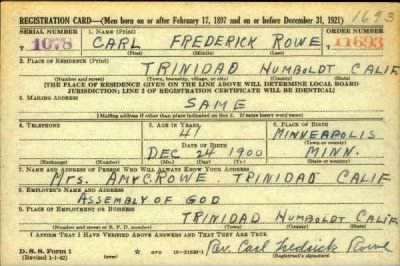 REGISTRATION CARD—(Men born on or after February 17, 1897 and on or before December 31, 1921) 1693
SERIAL NUMBER 1. NAME (Print) ORDER NUMBER
T 1078 CARL FREDERICK ROWE T 11693
(First) (Middle) (Last)
2. PLACE OF RESIDENCE (Print)
TRINIDAD HUMBOLDT CALIF
(Number and street) (Town, township, village, or city) (County) (State)
[THE PLACE OF RESIDENCE GIVEN ON THE LINE ABOVE WILL DETERMINE LOCAL BOARD
JURISDICTION; LINE 2 OF REGISTRATION CERTIFICATE WILL BE IDENTICAL]
3. MAILING ADDRESS
SAME
[Mailing address if other than place indicated in line 2. If same insert word same]
4. TELEPHONE 5. AGE IN YEARS 6. PLACE OF BIRTH
41 MINNEAPOLIS
DATE OF BIRTH (Town or county)
DEC 24 1900 MINN.
(Exchange) (Number) (Mo.) (Day) (Yr.) (State or country)
7. NAME AND ADDRESS OF PERSON WHO WILL ALWAYS KNOW YOUR ADDRESS
Mrs. AMY C. ROWE. TRINIDAD CALIF
8. EMPLOYER'S NAME AND ADDRESS
ASSEMBLY OF GOD
9. PLACE OF EMPLOYMENT OR BUSINESS
TRINIDAD HUMBOLDT CALIF
(Number and street or R. F. D. number) (Town) (County) (State)
I AFFIRM THAT I HAVE VERIFIED ABOVE ANSWERS AND THAT THEY ARE TRUE.
D. S. S. Form 1 (over) GPO 16—21630-1 Rev. Carl Fredrick Rowe
(Revised 1-1-42) (Registrant's signature)